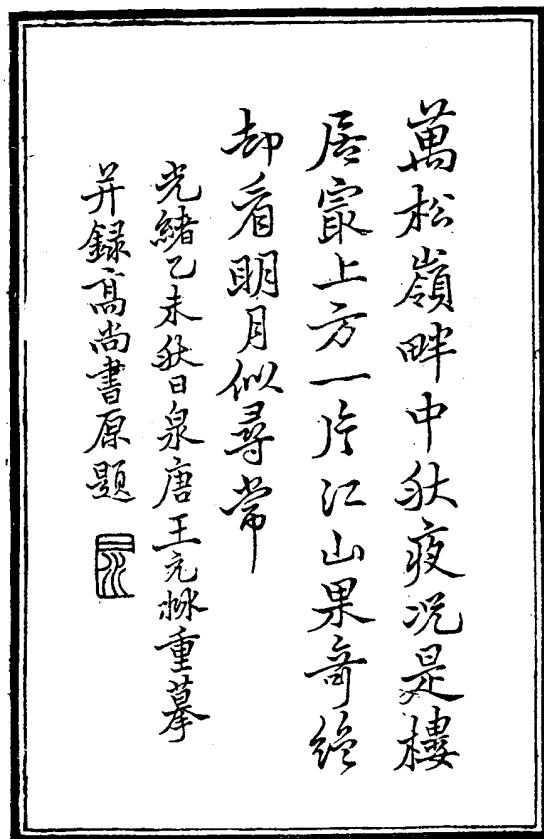 萬松嶺畔中秋夜況是樓
居寂上方一片江山果奇絶
却看明月似尋常
光緒乙未秋日泉唐王元𣲖重摹
并録高尚書原題